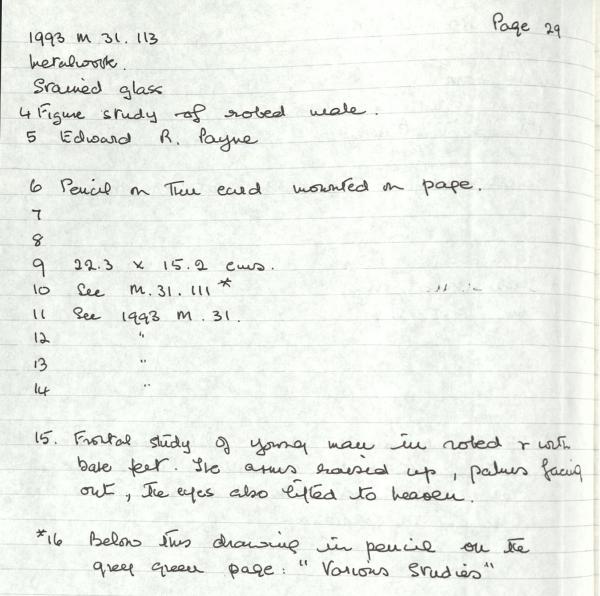 Page 29
1993 M.31.113
Metalwork.
Stained glass
4 Figure study of robed male.
5 Edward R. Payne
6 Pencil on thin card mounted on page.
7
8
9 22.3 x 15.2 cms.
10 See M.31.111 *
11 See 1993 M.31.
12 "
13 "
14 "
15. Frontal study of young man in robed & with
bare feet. The arms raised up, palms facing
out, the eyes also lifted to heaven.
*16 Below this drawing in pencil on the
grey green page: "Various Studies"